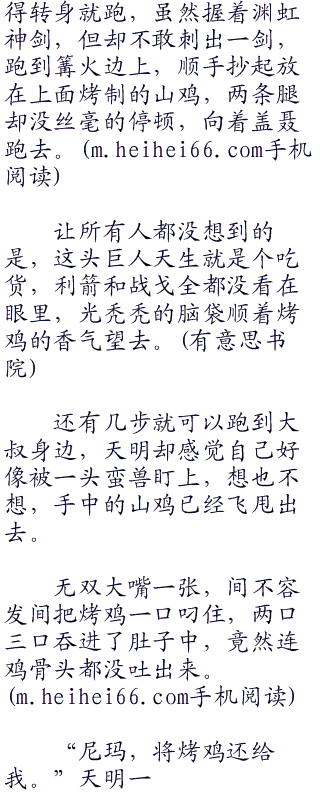 得转身就跑，虽然握着渊虹
神剑，但却不敢刺出一剑，
跑到篝火边上，顺手抄起放
在上面烤制的山鸡，两条腿
却没丝毫的停顿，向着盖聂
跑去。(m.heihei66.com手机
阅读)
让所有人都没想到的
是，这头巨人天生就是个吃
货，利箭和战戈全都没看在
眼里，光秃秃的脑袋顺着烤
鸡的香气望去。(有意思书
院)
还有几步就可以跑到大
叔身边，天明却感觉自己好
像被一头蛮兽盯上，想也不
想，手中的山鸡已经飞甩出
去。
无双大嘴一张，间不容
发间把烤鸡一口叼住，两口
三口吞进了肚子中，竟然连
鸡骨头都没吐出来。
(m.heihei66.com手机阅读)
“尼玛，将烤鸡还给
我。”天明一